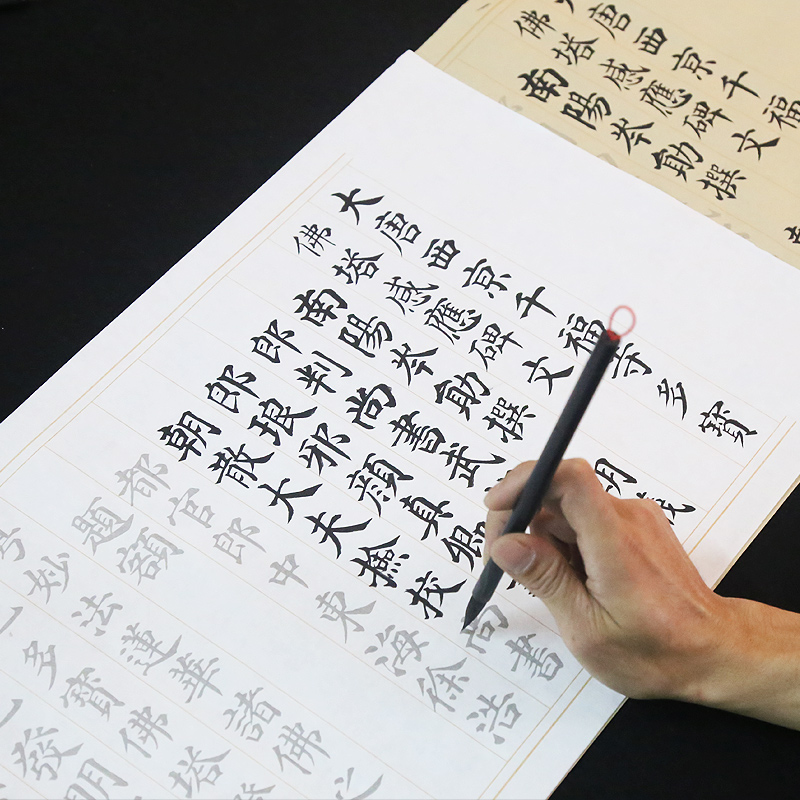 唐西京千福
佛塔感應碑文
南陽岑勛撰
大唐西京千福寺多寶
佛塔感應碑文
南陽岑勛撰
郎判尚書武
郎琅邪顏真卿
朝散大夫撿校尚書
都官郎中東海徐浩
題額
妙法蓮華諸佛
多寶佛塔
發明